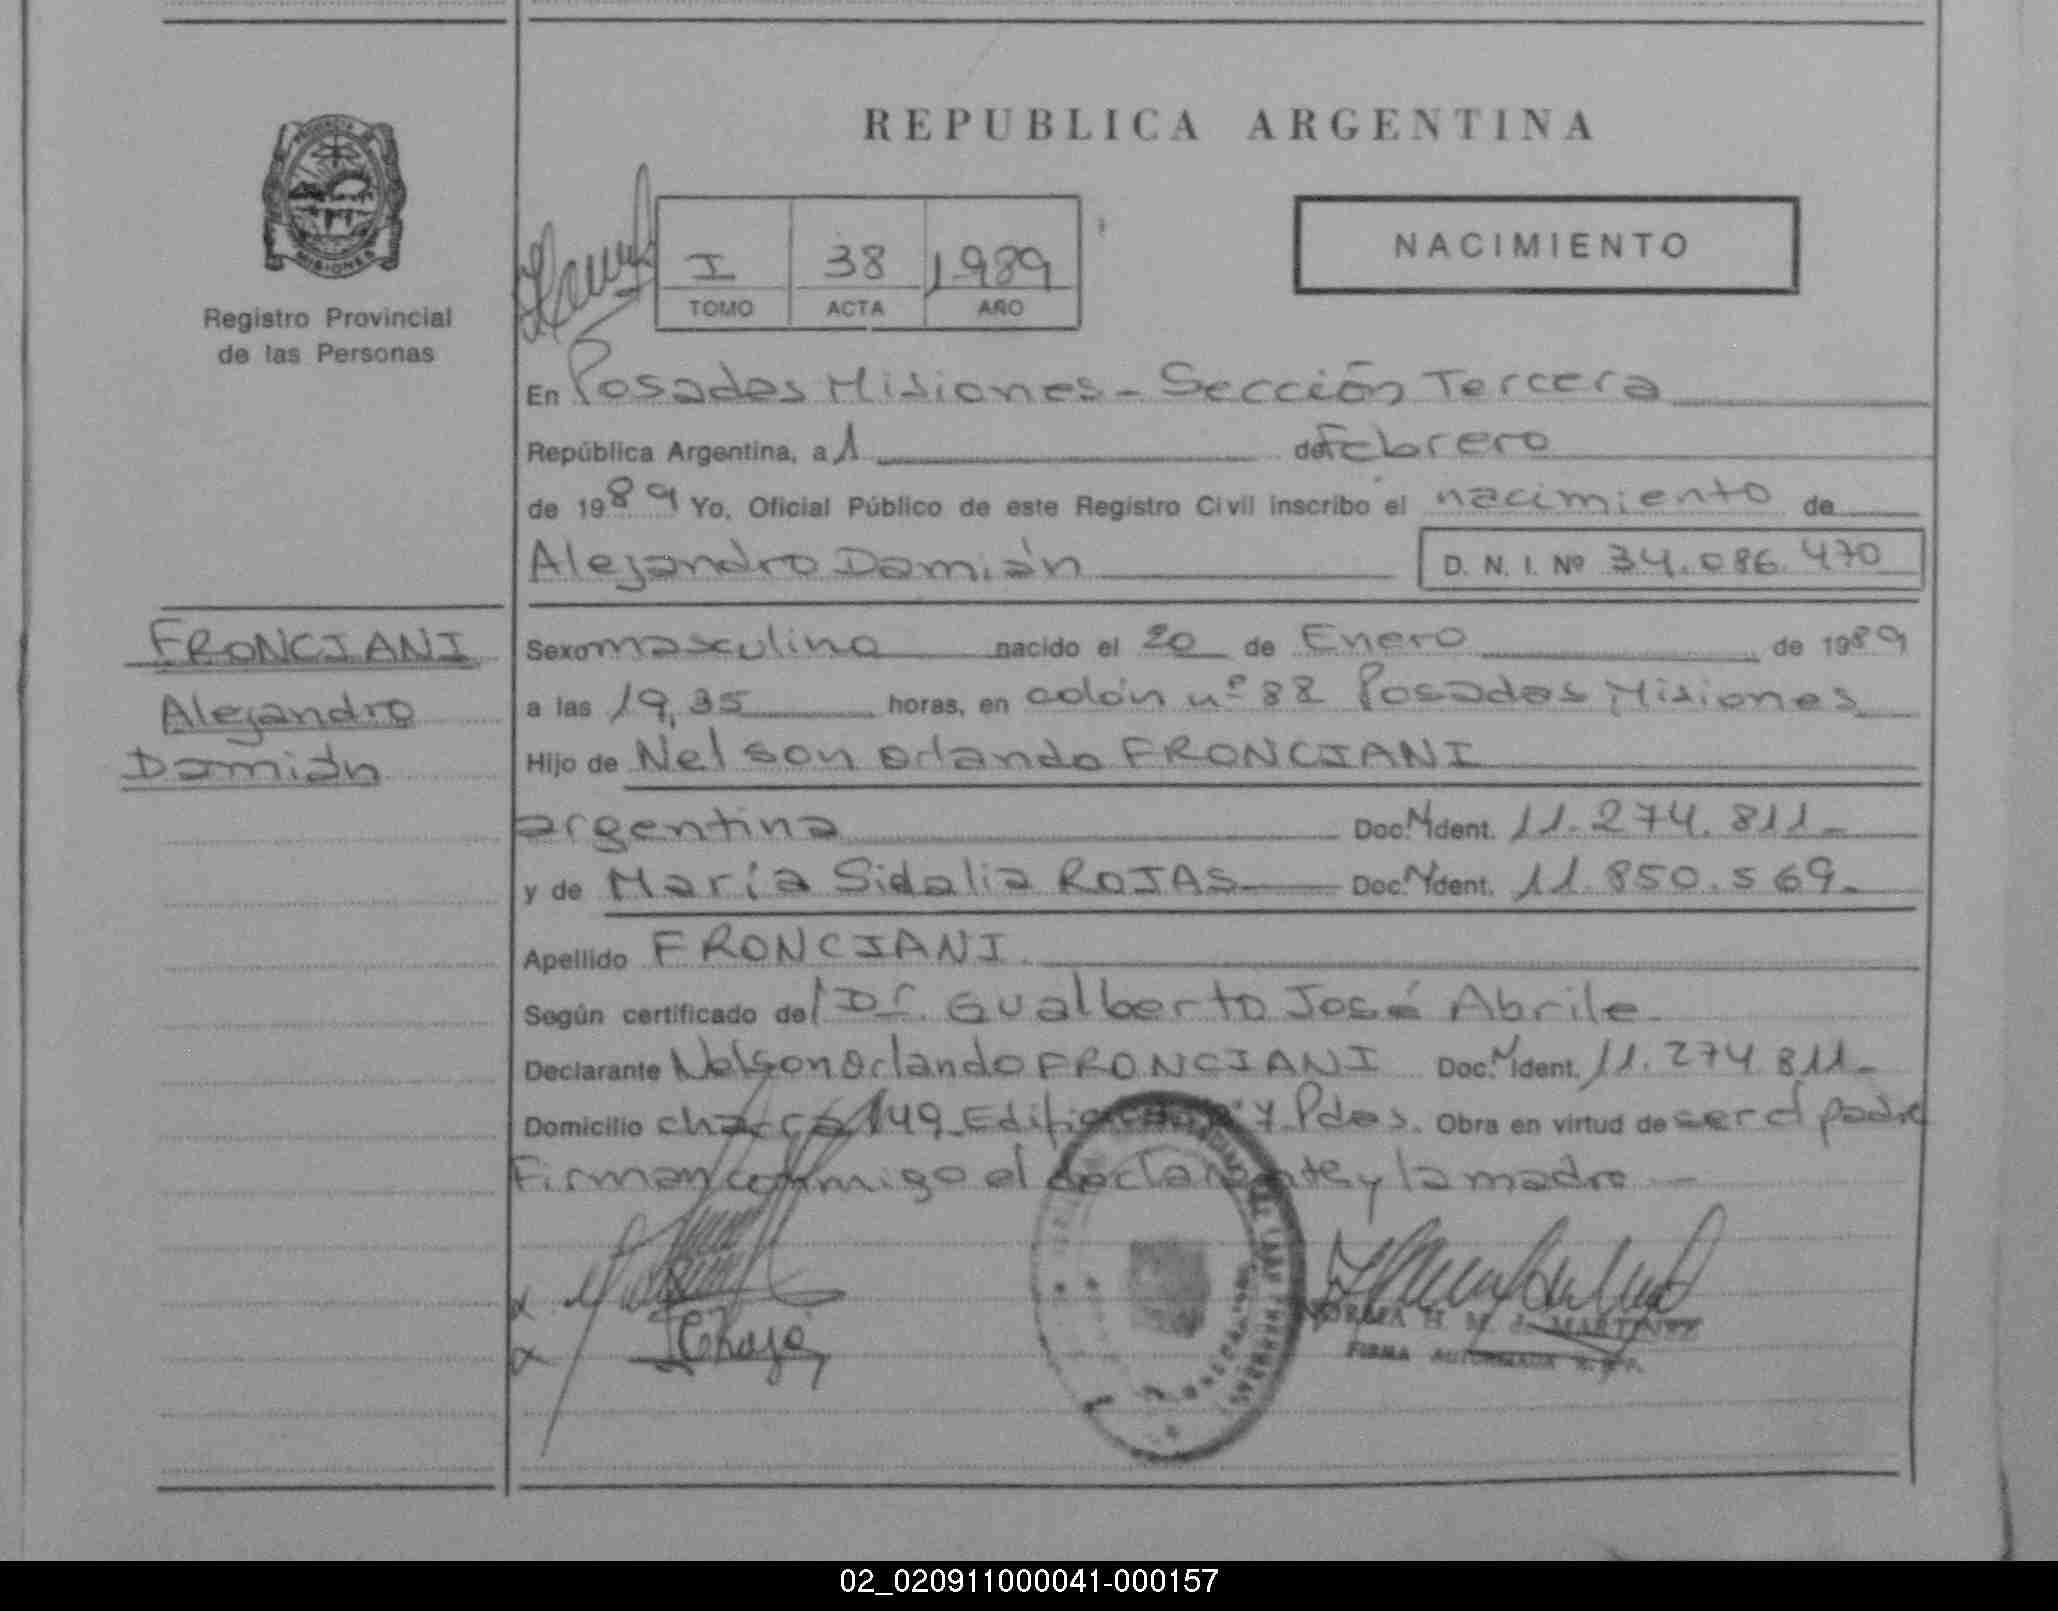 REPUBLICA ARGENTINA
PROVINCIA
MISIONES
Registro Provincial
de las Personas
I 38 1989
TOMO ACTA AÑO
NACIMIENTO
En Posadas Misiones - Sección Tercera
República Argentina, a 1 de Febrero
de 1989 Yo, Oficial Público de este Registro Civil inscribo el nacimiento de
Alejandro Damián D. N. I. Nº 34.086.470
FRONCIANI
Alejandro
Damián
Sexo masculino nacido el 20 de Enero de 1989
a las 19,35 horas, en colón nº 82 Posadas Misiones
Hijo de Nelson Orlando FRONCIANI
argentina Doc. N Ident. 11.274.811-
y de María Sidalia ROJAS Doc. N Ident. 11.850.569-
Apellido FRONCIANI
Según certificado del Dr. Gualberto José Abrile
Declarante Nelson Orlando FRONCIANI Doc. N Ident. 11.274.811-
Domicilio chacra 149 Pdas. Obra en virtud de ser el padre
Firman conmigo el declarante y la madre -
NORMA H. M. de MARTINEZ
FIRMA AUTORIZADA
02_020911000041-000157